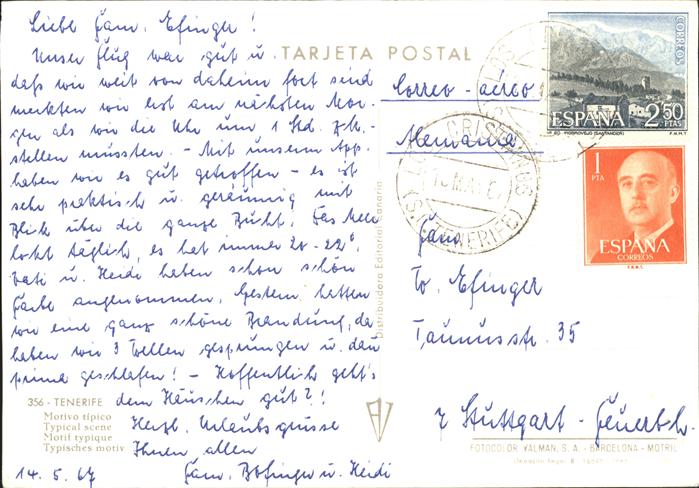 Liebe Fam. Efinger!
Unser Flug war gut u.
daß wir weit von daheim fort sind
merkten wir erst am nächsten Mor-
gen als wir die Uhr um 1 Std. zk.-
stellen mussten. - Mit unserm App.
haben wir es gut getroffen - es ist
sehr praktisch u. geräumig mit
Blick über die ganze Bucht. Das Meer
lockt täglich, es hat immer 20-22°.
Vati u. Heidi haben schon schön
Farbe angenommen. Gestern hatten
wir eine ganz schöne Brandung, da
haben wir 3 Wellen gesprungen u. dan
prima geschlafen! - Hoffentlich geht's
dem Häuschen gut?!
Herzl. Urlaubsgrüsse
Ihnen allen
14.5.67 Fam. Bofinger u. Heidi
356 - TENERIFE
Motivo típico
Typical scene
Motif typique
Typisches motiv
TARJETA POSTAL
Correo - aéreo
Alemania
Distribuidora Editorial Canaria
CORREOS
ESPAÑA 2'50
PTAS
MOGROVEJO (SANTANDER)
F.N.M.T.
1
PTA
ESPAÑA
CORREOS
F.N.M.T.
CRISTIANOS
(S.C. TENERIFE)
Fam.
To. Efinger
Taunusstr. 35
7 Stuttgart - Feuerb.
FOTOCOLOR VALMAN, S. A. - BARCELONA - MOTRIL